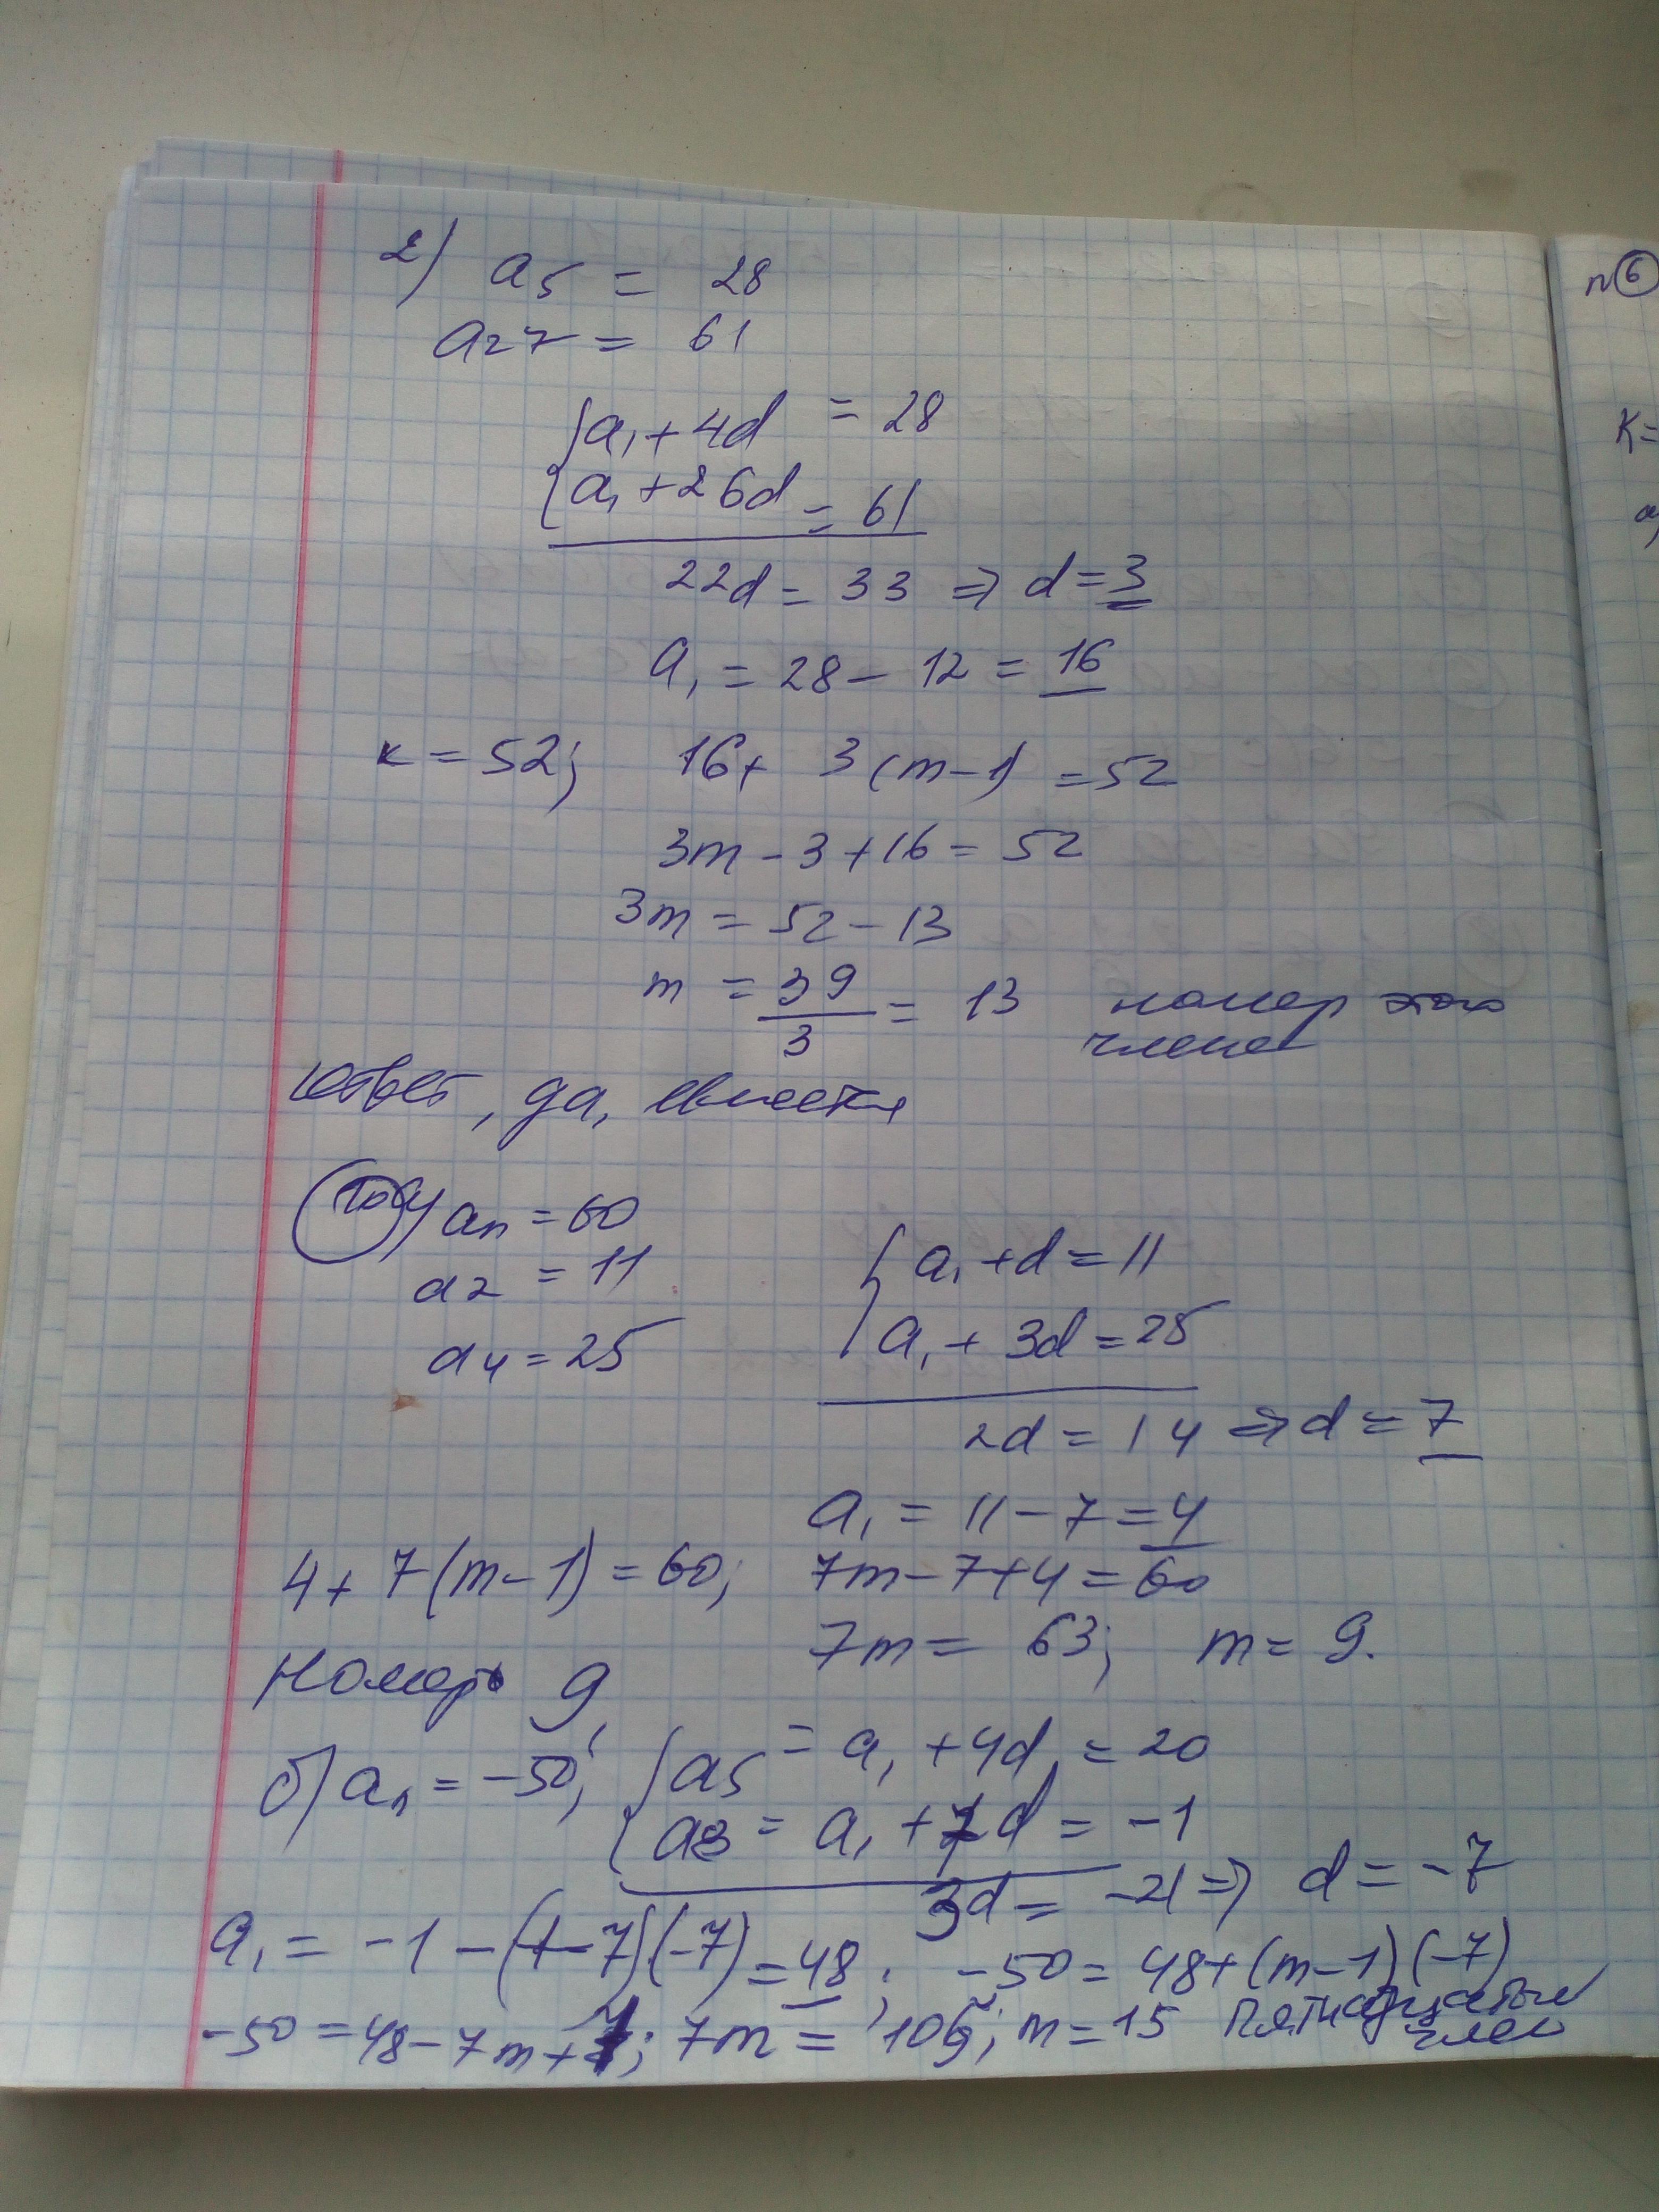 2) a5 = 28
a27 = 61
{ a1 + 4d = 28
{ a1 + 26d = 61
22d = 33 ⇒ d = 3
a1 = 28 - 12 = 16
к = 52; 16 + 3(m-1) = 52
3m - 3 + 16 = 52
3m = 52 - 13
m = 39/3 = 13 номер этого
члена
ответ, да, является
an = 60
a2 = 11
a4 = 25
{ a1 + d = 11
{ a1 + 3d = 25
2d = 14 ⇒ d = 7
a1 = 11 - 7 = 4
4 + 7(m-1) = 60; 7m - 7 + 4 = 60
7m = 63; m = 9.
Номер 9
б) an = -50; { a5 = a1 + 4d = 20
{ a8 = a1 + 7d = -1
3d = -21 ⇒ d = -7
a1 = -1 - (+7)(-7) = 48; -50 = 48 + (m-1)(-7)
-50 = 48 - 7m + 7; 7m = 105; m = 15 Пятнадцатый
член
n 6
K =